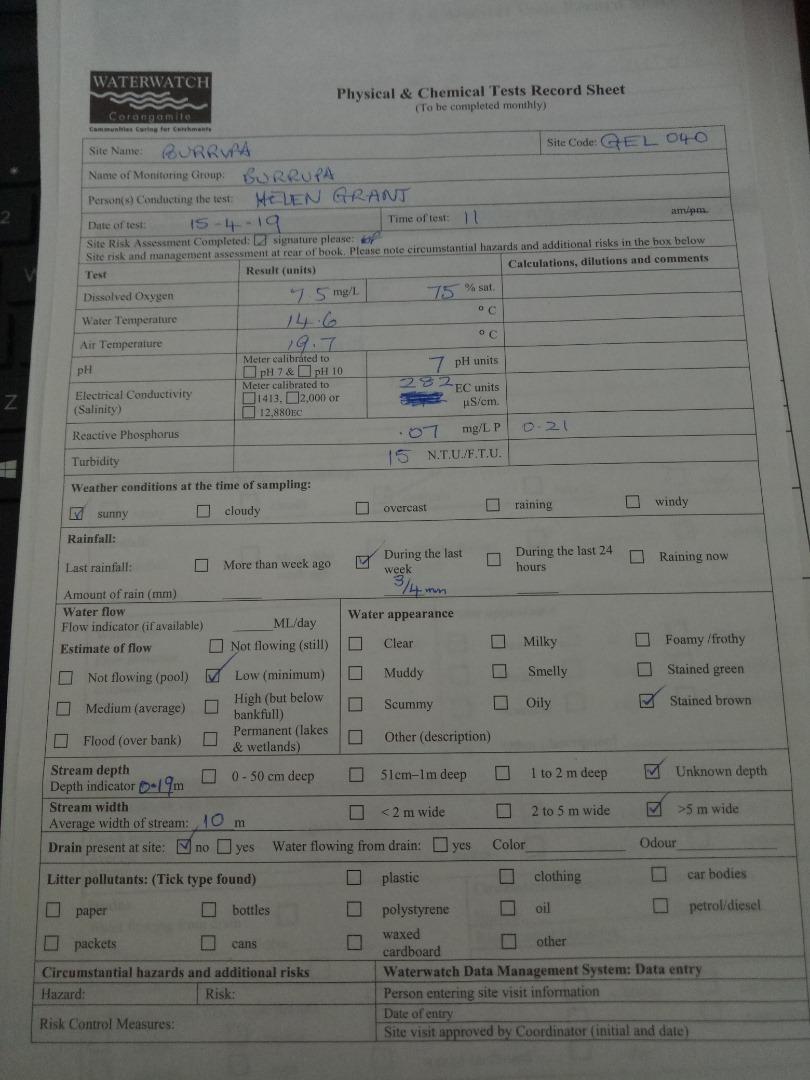 WATERWATCH
Corangamite
Communities Caring for Catchments
Physical & Chemical Tests Record Sheet
(To be completed monthly)
Site Name: BURRUPA Site Code: GEL 040
Name of Monitoring Group: BURRUPA
Person(s) Conducting the test: HELEN GRANT
Date of test: 15-4-19 Time of test: 11 am/pm.
Site Risk Assessment Completed: ☑ signature please:
Site risk and management assessment at rear of book. Please note circumstantial hazards and additional risks in the box below
Test Result (units) Calculations, dilutions and comments
Dissolved Oxygen 7.5 mg/L 75 % sat.
Water Temperature 14.6 °C
Air Temperature 19.7 °C
pH Meter calibrated to ☐ pH 7 & ☐ pH 10 7 pH units
Electrical Conductivity (Salinity) Meter calibrated to ☐ 1413, ☐ 2,000 or ☐ 12,880EC 282 EC units µS/cm.
Reactive Phosphorus .07 mg/L P 0.21
Turbidity 15 N.T.U./F.T.U.
Weather conditions at the time of sampling:
☑ sunny ☐ cloudy ☐ overcast ☐ raining ☐ windy
Rainfall:
Last rainfall: ☐ More than week ago ☑ During the last week ☐ During the last 24 hours ☐ Raining now
Amount of rain (mm) 3/4 mm
Water flow
Flow indicator (if available) ML/day
Estimate of flow ☐ Not flowing (still)
☐ Not flowing (pool) ☑ Low (minimum)
☐ Medium (average) ☐ High (but below bankfull)
☐ Flood (over bank) ☐ Permanent (lakes & wetlands)
Water appearance
☐ Clear ☐ Milky ☐ Foamy /frothy
☐ Muddy ☐ Smelly ☐ Stained green
☐ Scummy ☐ Oily ☑ Stained brown
☐ Other (description)
Stream depth
Depth indicator 0.19 m ☐ 0 - 50 cm deep ☐ 51cm–1m deep ☐ 1 to 2 m deep ☑ Unknown depth
Stream width
Average width of stream: 10 m ☐ < 2 m wide ☐ 2 to 5 m wide ☑ >5 m wide
Drain present at site: ☑ no ☐ yes Water flowing from drain: ☐ yes Color Odour
Litter pollutants: (Tick type found) ☐ plastic ☐ clothing ☐ car bodies
☐ paper ☐ bottles ☐ polystyrene ☐ oil ☐ petrol/diesel
☐ packets ☐ cans ☐ waxed cardboard ☐ other
Circumstantial hazards and additional risks
Hazard: Risk:
Risk Control Measures:
Waterwatch Data Management System: Data entry
Person entering site visit information
Date of entry
Site visit approved by Coordinator (initial and date)